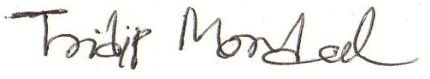 Tridip Mondal